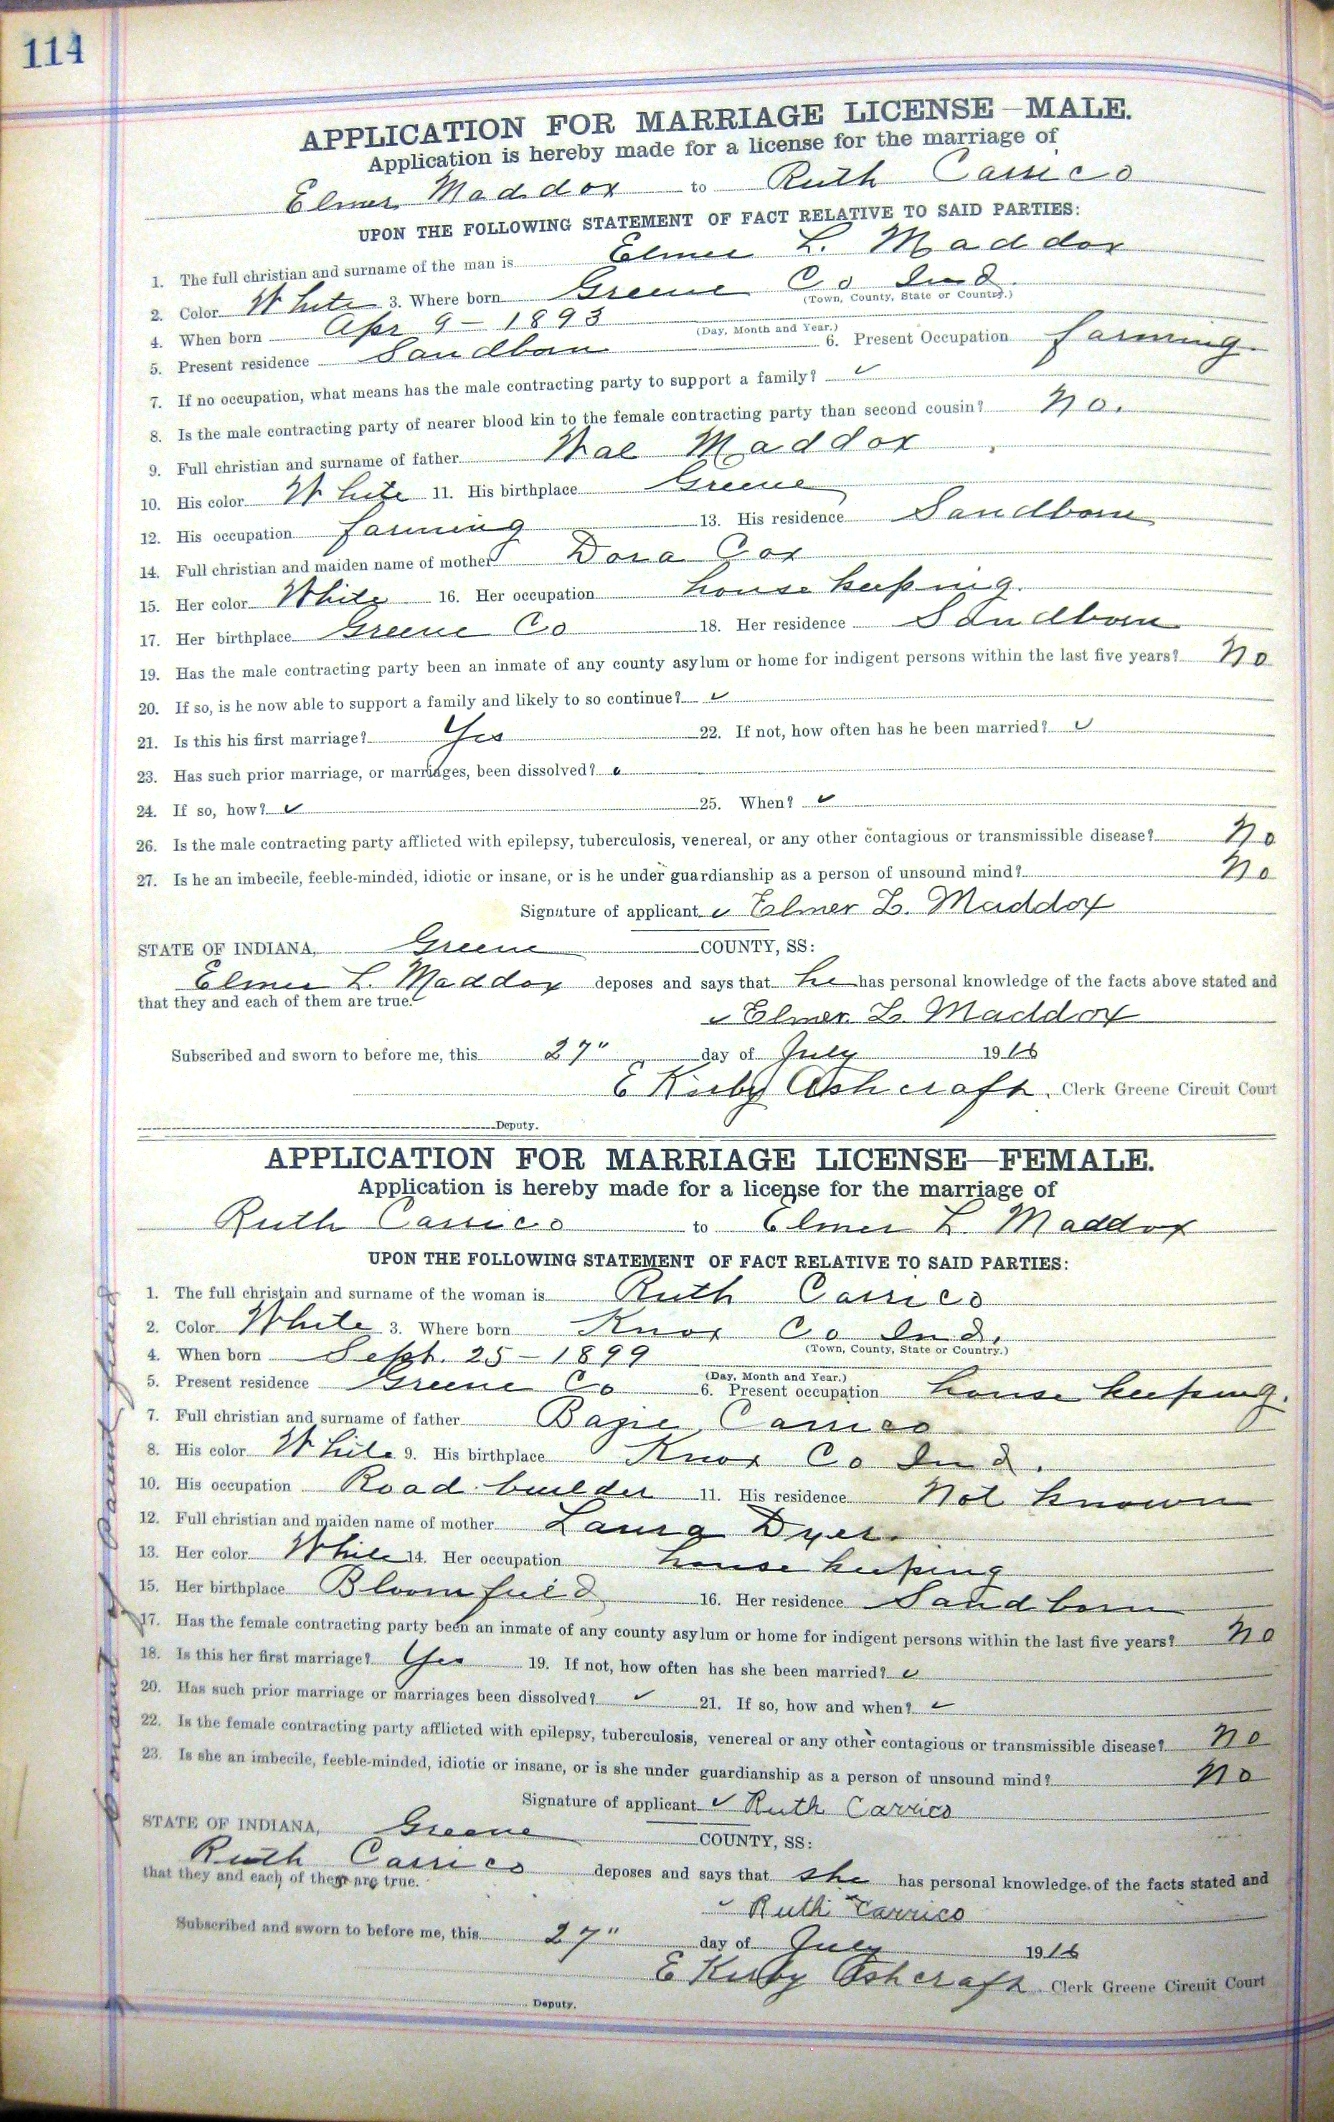 114
APPLICATION FOR MARRIAGE LICENSE—MALE.
Application is hereby made for a license for the marriage of
Elmer Maddox to Ruth Carrico
UPON THE FOLLOWING STATEMENT OF FACT RELATIVE TO SAID PARTIES:
1. The full christian and surname of the man is Elmer L. Maddox
2. Color White 3. Where born Greene Co Ind.
(Town, County, State or Country.)
4. When born Apr 9 - 1893
(Day, Month and Year.)
5. Present residence Sandborn 6. Present Occupation farming
7. If no occupation, what means has the male contracting party to support a family? ✓
8. Is the male contracting party of nearer blood kin to the female contracting party than second cousin? No.
9. Full christian and surname of father Maddox
10. His color White 11. His birthplace Greene
12. His occupation farming 13. His residence Sandborn
14. Full christian and maiden name of mother Dora Cox
15. Her color White 16. Her occupation house keeping.
17. Her birthplace Greene Co 18. Her residence Sandborn
19. Has the male contracting party been an inmate of any county asylum or home for indigent persons within the last five years? No
20. If so, is he now able to support a family and likely to so continue? ✓
21. Is this his first marriage? Yes 22. If not, how often has he been married? ✓
23. Has such prior marriage, or marriages, been dissolved?
24. If so, how? ✓ 25. When? ✓
26. Is the male contracting party afflicted with epilepsy, tuberculosis, venereal, or any other contagious or transmissible disease? No
27. Is he an imbecile, feeble-minded, idiotic or insane, or is he under guardianship as a person of unsound mind? No
Signature of applicant ✓ Elmer L. Maddox
STATE OF INDIANA, Greene COUNTY, SS:
Elmer L. Maddox deposes and says that he has personal knowledge of the facts above stated and
that they and each of them are true.
✓ Elmer L. Maddox
Subscribed and sworn to before me, this 27" day of July 1916
E Kirby Ashcraft, Clerk Greene Circuit Court
Deputy.
APPLICATION FOR MARRIAGE LICENSE—FEMALE.
Application is hereby made for a license for the marriage of
Ruth Carrico to Elmer L. Maddox
UPON THE FOLLOWING STATEMENT OF FACT RELATIVE TO SAID PARTIES:
1. The full christain and surname of the woman is Ruth Carrico
2. Color White 3. Where born Knox Co Ind.
(Town, County, State or Country.)
4. When born Sept. 25 - 1899
(Day, Month and Year.)
5. Present residence Greene Co 6. Present occupation house keeping.
7. Full christian and surname of father Carrico
8. His color White 9. His birthplace Knox Co Ind.
10. His occupation Road builder 11. His residence Not known
12. Full christian and maiden name of mother Laura Dyer.
13. Her color White 14. Her occupation house keeping
15. Her birthplace Bloomfield 16. Her residence Sandborn
17. Has the female contracting party been an inmate of any county asylum or home for indigent persons within the last five years? No
18. Is this her first marriage? Yes 19. If not, how often has she been married? ✓
20. Has such prior marriage or marriages been dissolved? ✓ 21. If so, how and when? ✓
22. Is the female contracting party afflicted with epilepsy, tuberculosis, venereal or any other contagious or transmissible disease? No
23. Is she an imbecile, feeble-minded, idiotic or insane, or is she under guardianship as a person of unsound mind? No
Signature of applicant ✓ Ruth Carrico
STATE OF INDIANA, Greene COUNTY, SS:
Ruth Carrico deposes and says that she has personal knowledge of the facts stated and
that they and each of them are true.
✓ Ruth Carrico
Subscribed and sworn to before me, this 27" day of July 1916
E Kirby Ashcraft Clerk Greene Circuit Court
Deputy.
Consent of Parent filed